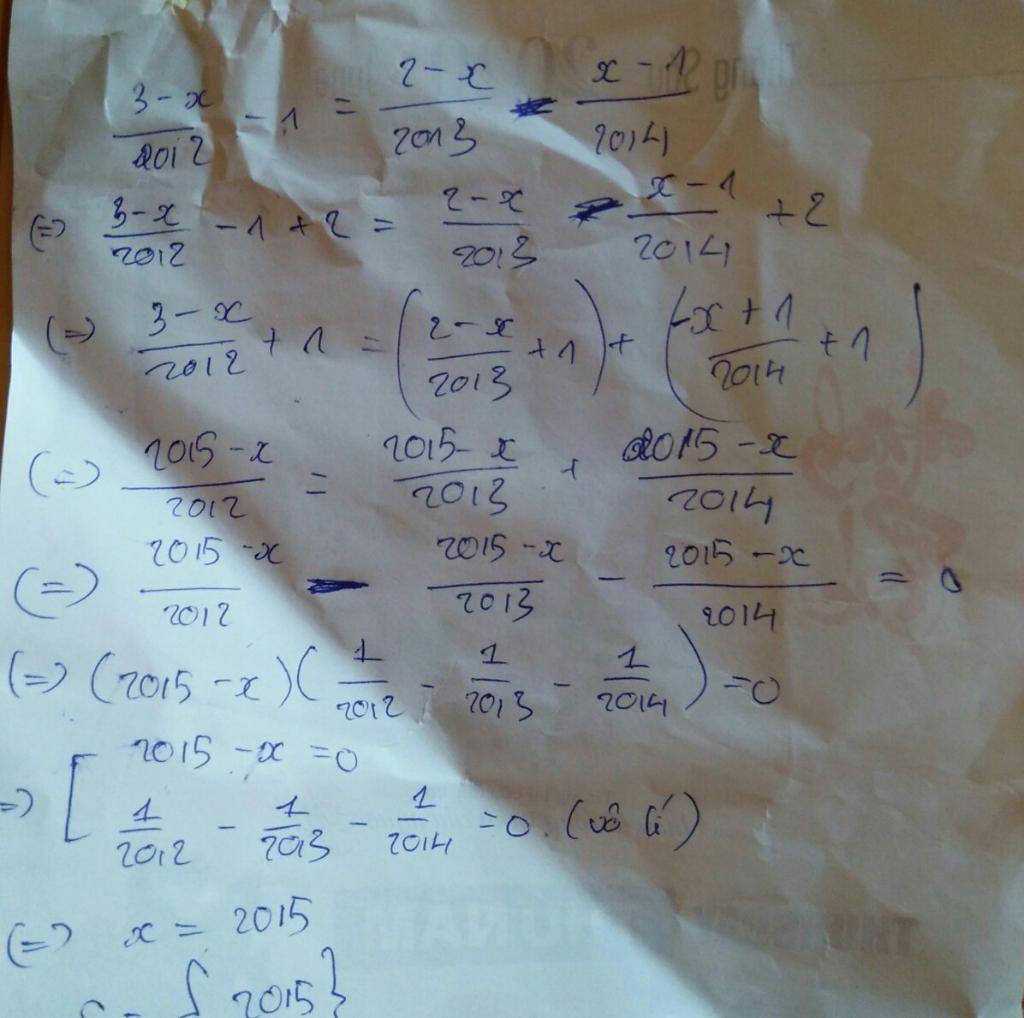 3-x/2012 - 1 = 2-x/2013 - x-1/2014
(=) 3-x/2012 - 1 + 2 = 2-x/2013 - x-1/2014 + 2
(=) 3-x/2012 + 1 = (2-x/2013 + 1) + (-x+1/2014 + 1)
(=) 2015-x/2012 = 2015-x/2013 + 2015-x/2014
(=) 2015-x/2012 - 2015-x/2013 - 2015-x/2014 = 0
(=) (2015-x)(1/2012 - 1/2013 - 1/2014) = 0
=) [ 2015-x = 0
1/2012 - 1/2013 - 1/2014 = 0. (vô lí)
(=) x = 2015
S = {2015}